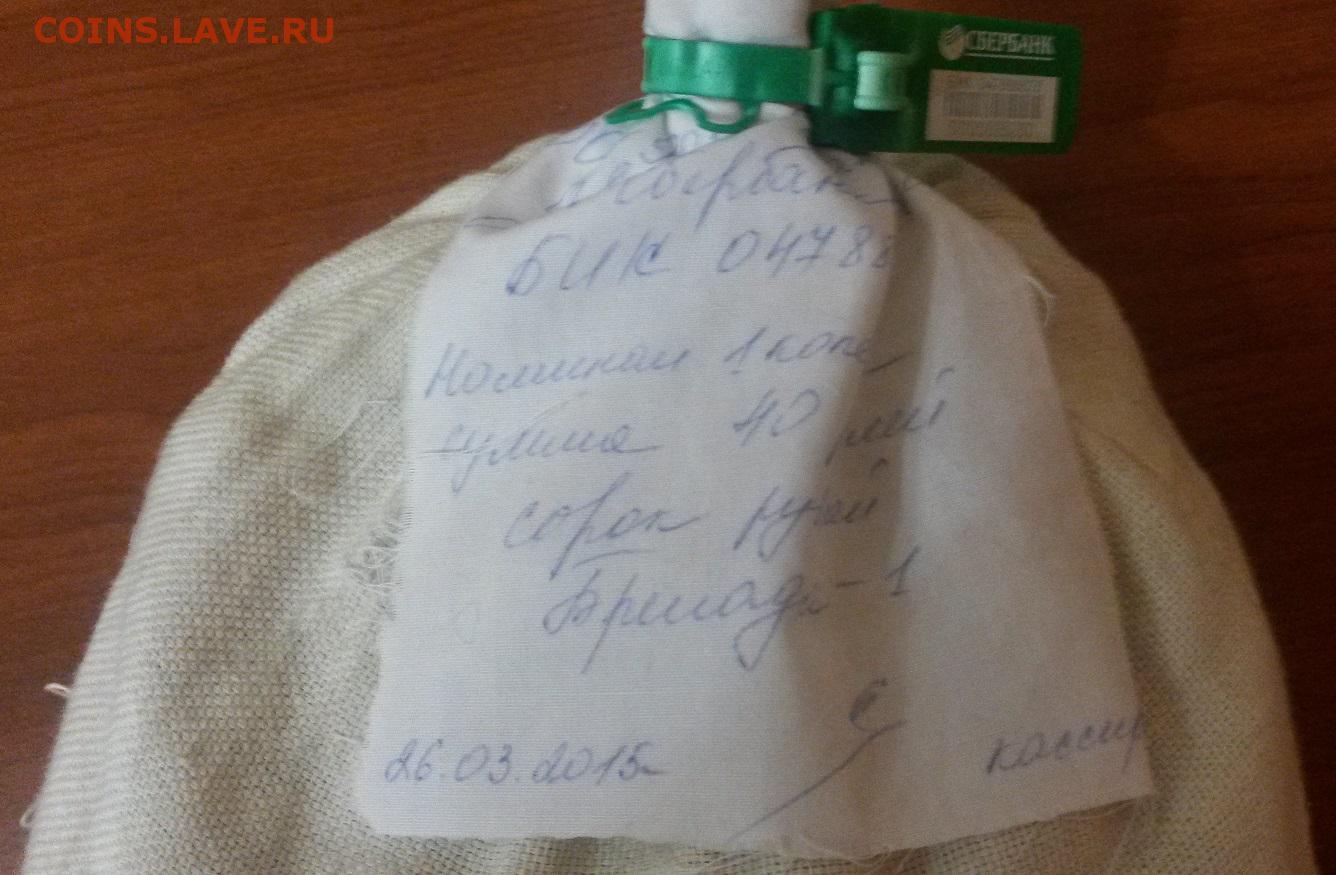 COINS.LAVE.RU
СБЕРБАНК
Сбербанк
БИК 0478
Номинал 1 копе
сумма 40 руб
сорок рублей
Бригада - 1
26.03.2015г
кассир